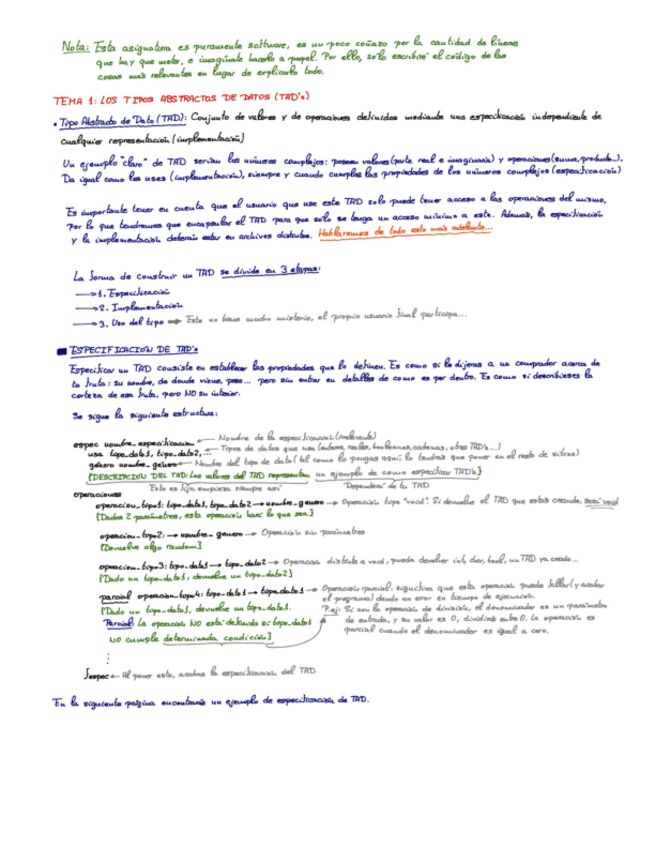 Nota: Esta asignatura es puramente software, es un poco coñazo por la cantidad de líneas
que hay que meter, e imagínate hacerlo a papel. Por ello, solo escribiré el código de las
cosas más relevantes en lugar de explicarlo todo.
TEMA 1: LOS TIPOS ABSTRACTOS DE DATOS (TAD's)
• Tipo Abstracto de Dato (TAD): Conjunto de valores y de operaciones definidos mediante una especificación independiente de
cualquier representación (implementación)
Un ejemplo "claro" de TAD serían los números complejos: poseen valores (parte real e imaginaria) y operaciones (suma, producto...).
Da igual como los uses (implementación), siempre y cuando cumplas las propiedades de los números complejos (especificación)
Es importante tener en cuenta que el usuario que use este TAD solo puede tener acceso a las operaciones del mismo,
por lo que tendremos que encapsular el TAD para que solo se tenga un acceso mínimo a este. Además, la especificación
y la implementación deberán estar en archivos distintos. Hablaremos de todo esto más adelante...
La forma de construir un TAD se divide en 3 etapas:
→ 1. Especificación
→ 2. Implementación
→ 3. Uso del tipo ⇒ Esto no tiene mucho misterio, el propio usuario final participa...
■ ESPECIFICACIÓN DE TAD's
Especificar un TAD consiste en establecer las propiedades que lo definen. Es como si le dijeras a un comprador acerca de
tu fruta: su nombre, de donde viene, peso... pero sin entrar en detalles de como es por dentro. Es como si describieses la
corteza de esa fruta, pero NO su interior.
Se sigue la siguiente estructura:
espec nombre_especificacion ← Nombre de la especificación (irrelevante)
usa tipo_dato1, tipo_dato2,... ← Tipos de datos que usa (enteros, reales, booleanos, cadenas, otros TAD's...)
género nombre_genero ← Nombre del tipo de dato (tal como lo pongas aquí, lo tendrás que poner en el resto de sitios)
{DESCRIPCIÓN DEL TAD: Los valores del TAD representan un ejemplo de como especificar TAD's}
Esto es fijo, empieza siempre así Dependerá de tu TAD
operaciones
operacion_tipo1: tipo_dato1, tipo_dato2 → nombre_genero → Operación tipo "void". Si devuelve el TAD que estás creando, será void
{Dados 2 parámetros, esta operación hace lo que sea}
operacion_tipo2: → nombre_genero → Operación sin parámetros
{Devuelve algo random}
operacion_tipo3: tipo_dato1 → tipo_dato2 → Operación distinta a void, puede devolver int, char, bool, un TAD ya creado...
{Dado un tipo_dato1, devuelve un tipo_dato2}
parcial operacion_tipo4: tipo_dato1 → tipo_dato1 → Operación parcial: significa que esta operación puede fallar (y acabar
el programa) dando un error en tiempo de ejecución.
{Dado un tipo_dato1, devuelve un tipo_dato1. P.ej: Si con la operación de división, el denominador es un parámetro
Parcial: la operación NO está definida si tipo_dato1 de entrada, y su valor es 0, divídirá entre 0. La operación es
NO cumple determinada condición} parcial cuando el denominador es igual a cero.
⋮
fespec ← Al poner esto, acabas la especificación del TAD
En la siguiente página encontrarás un ejemplo de especificación de TAD.